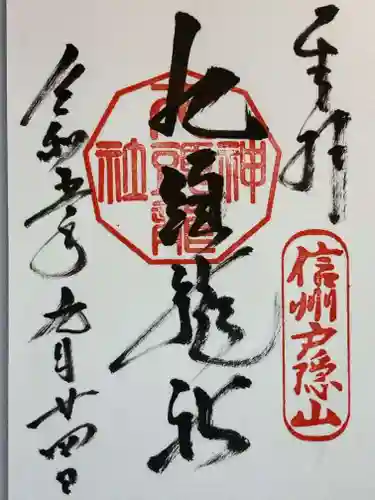 奉拝
信州戸隠山
九頭龍社
九頭龍神社
令和五年
九月廿四日